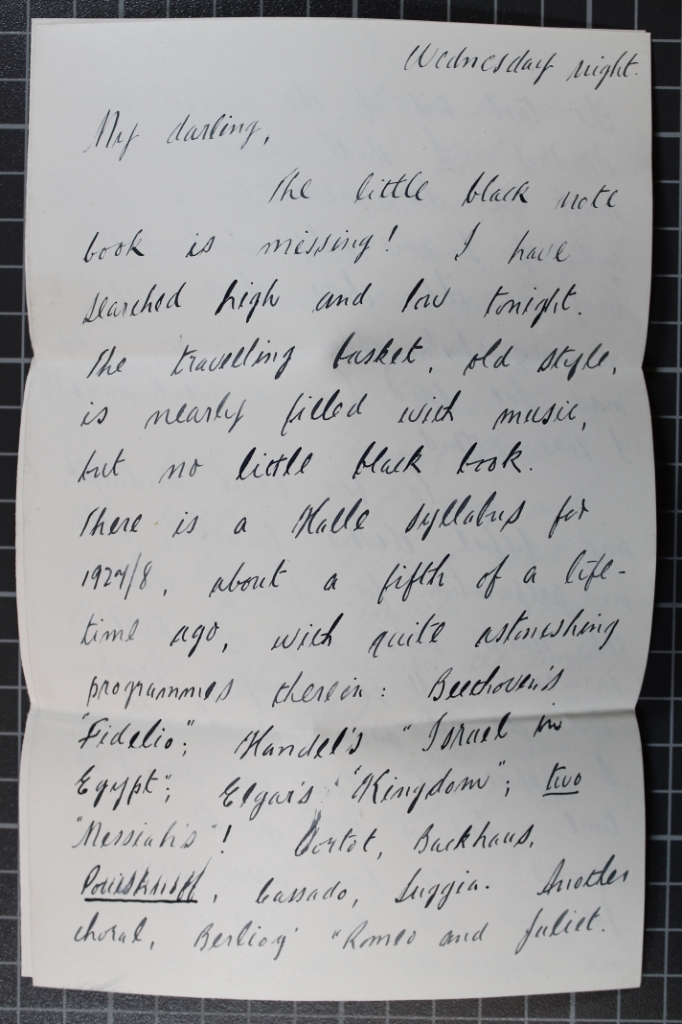 Wednesday night.
My darling,
The little black note
book is missing! I have
searched high and low tonight.
The travelling basket, old style,
is nearly filled with music,
but no little black book.
There is a Halle syllabus for
1927/8, about a fifth of a life-
time ago, with quite astonishing
programmes therein: Beethoven's
"Fidelio"; Handel's "Israel in
Egypt"; Elgar's "Kingdom"; two
"Messiah's"! Cortot, Backhaus,
, Cassado, Suggia. Another
choral, Berlioz' "Romeo and Juliet.